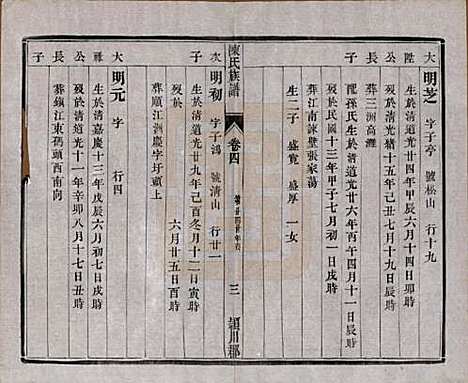 大陞公長子
明芝 字子亭 號松山 行十九
生於清道光廿四年甲辰六月十四日卯時
歿於清光緒十五年己丑七月十九日辰時
葬三洲高灘
配孫氏生於清道光廿六年丙午四月十一日辰時
歿於民國十三年甲子七月初六日辰時
葬江南諫壁張家蕩
生二子 盛寬 盛厚 一女
陳氏族譜
卷四
三 潁川郡
次子
明初 字子鴻 號清山 行廿一
生於清道光廿九年己酉冬月十二日寅時
歿於 六月廿五日酉時
葬順江洲慶字圩頭上
大祿公長子
明元 字 行四
生於清嘉慶十三年戊辰六月初七日戌時
歿於清道光廿一年辛丑八月十七日丑時
葬鎮江東碼頭西南向